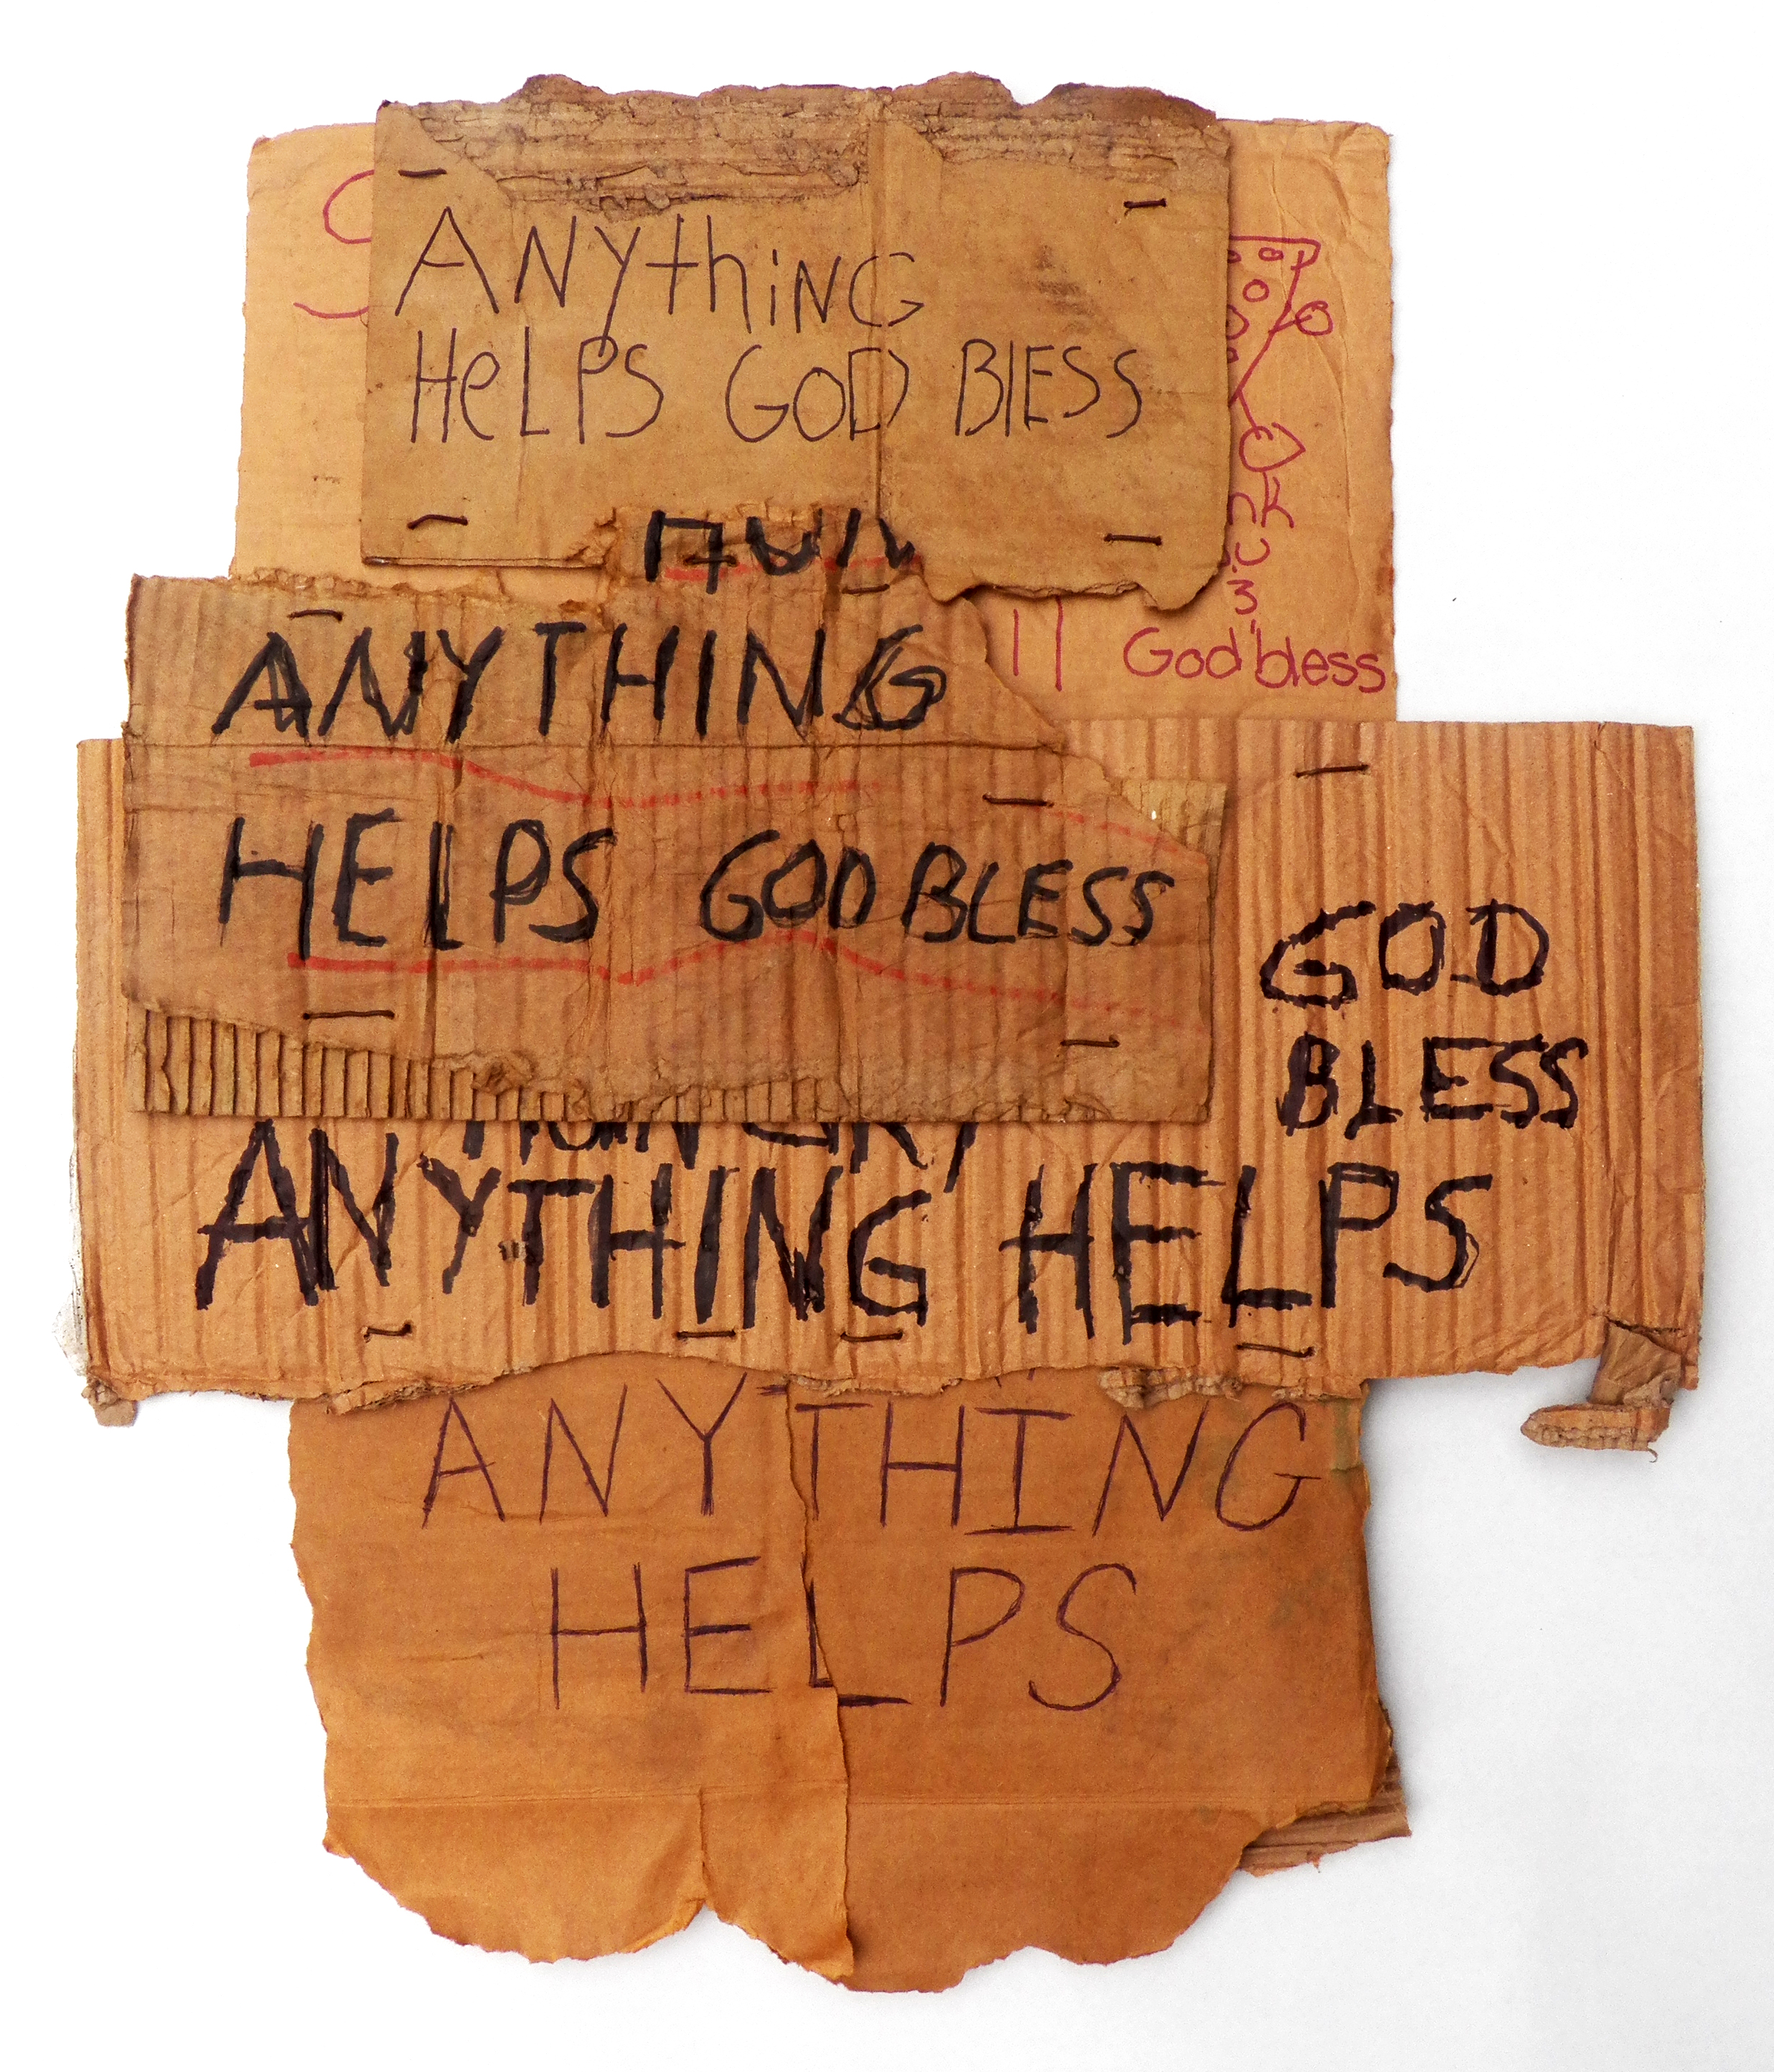 ANYthiNG
HeLPS GOD BlESS
God bless
ANYTHING
HELPS GOD BLESS
GOD
BLESS
HUNGRY
ANYTHING HELPS
ANYTHING
HELPS